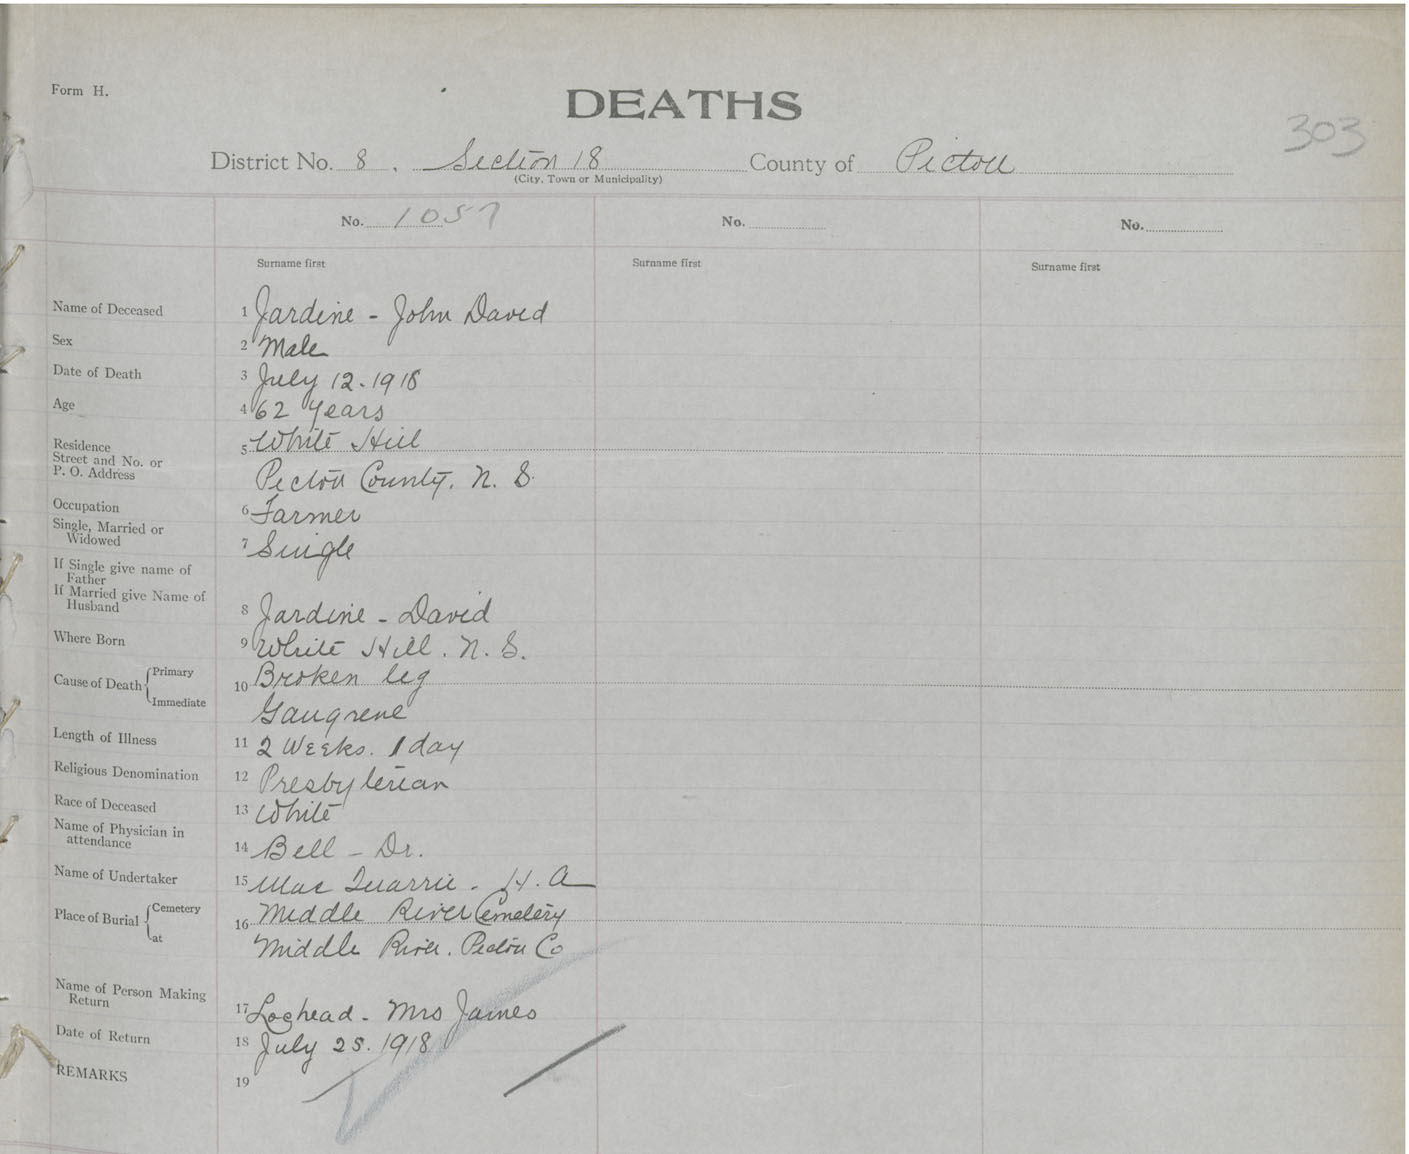 Form H.
DEATHS
303
District No. 8, Section 18 County of Pictou
(City, Town or Municipality)
No. 1057 No. No.
Surname first Surname first Surname first
Name of Deceased 1 Jardine - John David
Sex 2 Male
Date of Death 3 July 12. 1918
Age 4 62 Years
Residence 5 White Hill
Street and No. or
P. O. Address Pictou County. N. S.
Occupation 6 Farmer
Single, Married or
Widowed 7 Single
If Single give name of
Father
If Married give Name of
Husband 8 Jardine - David
Where Born 9 White Hill. N. S.
Cause of Death Primary 10 Broken leg
Immediate Gangrene
Length of Illness 11 2 Weeks. 1 day
Religious Denomination 12 Presbyterian
Race of Deceased 13 White
Name of Physician in
attendance 14 Bell - Dr.
Name of Undertaker 15 Mac Quarrie - H. A
Place of Burial Cemetery 16 Middle River Cemetery
at Middle River. Pictou Co
Name of Person Making
Return 17 Loghead - Mrs James
Date of Return 18 July 25. 1918
REMARKS 19